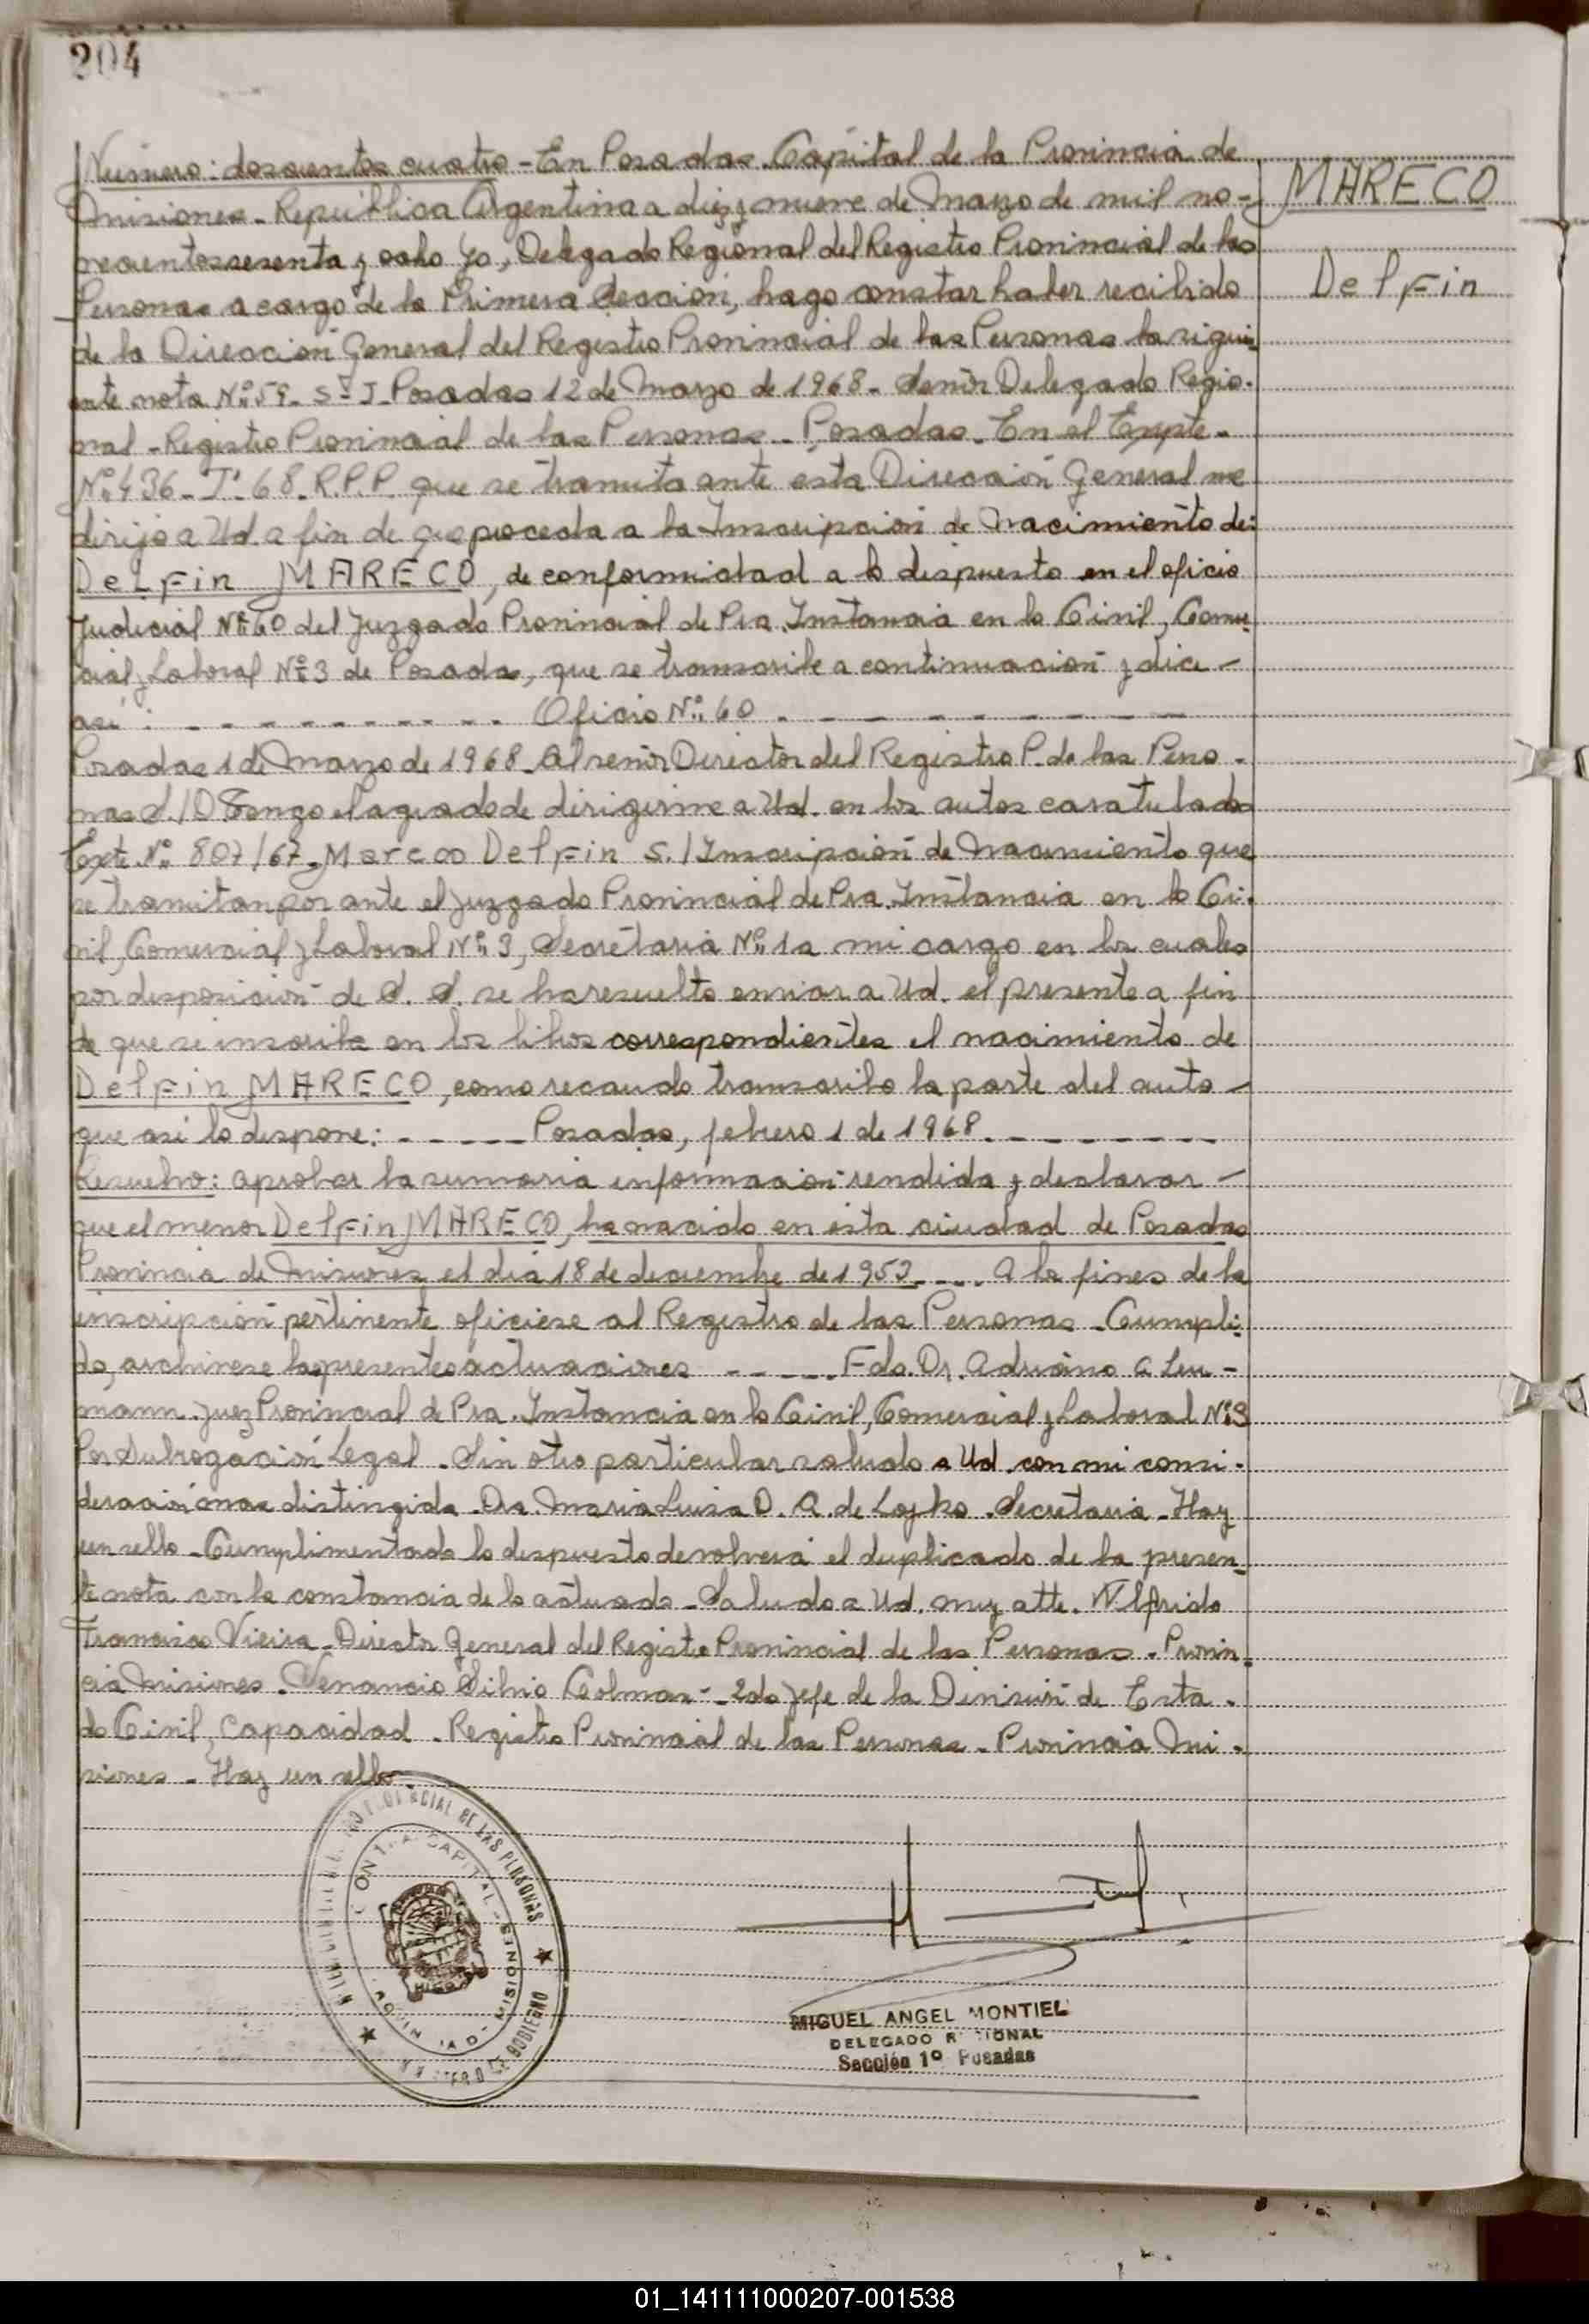 204
Número: doscientos cuatro - En Posadas Capital de la Provincia de
MARECO
Misiones - República Argentina a diez y nueve de Marzo de mil no-
vecientos sesenta y ocho Yo, Delegado Regional del Registro Provincial de las
Delfin
Personas a cargo de la Primera Sección, hago constar haber recibido
de la Dirección General del Registro Provincial de las Personas la sigui-
ente nota Nº 59 - S - J - Posadas 12 de Marzo de 1968 - Señor Delegado Regio-
nal - Registro Provincial de las Personas - Posadas - En el Expte -
Nº 436 - J - 68 - R.P.P. que se tramita ante esta Dirección General me
dirijo a Ud. a fin de que proceda a la Inscripción de Nacimiento de:
Delfin MARECO, de conformidad a lo dispuesto en el oficio
Judicial Nº 60 del Juzgado Provincial de Pra. Instancia en lo Civil, Comer-
cial y Laboral Nº 3 de Posadas, que se transcribe a continuación y dice -
así: - - - - - - - - - - Oficio Nº 60 - - - - - - - - - -
Posadas 1 de Marzo de 1968 - Al señor Director del Registro P. de las Perso-
nas S./D Tengo el agrado de dirigirme a Ud. en los autos caratulados
Expte Nº 807/67 - Mareco Delfin S./ Inscripción de Nacimiento que
se tramitan por ante el Juzgado Provincial de Pra. Instancia en lo Ci-
vil, Comercial y Laboral Nº 3, Secretaría Nº 1 a mi cargo en los cuales
por disposición de S. S. se ha resuelto enviar a Ud. el presente a fin
de que se inscriba en los libros correspondientes el nacimiento de
Delfin MARECO, como recaudo transcribo la parte del auto -
que así lo dispone: - - - - - Posadas, febrero 1 de 1968 - - - - - - - -
Resuelvo: aprobar la sumaria información rendida y declarar -
que el menor Delfin MARECO, ha nacido en esta ciudad de Posadas
Provincia de Misiones el día 18 de diciembre de 1953 - - - - A los fines de la
inscripción pertinente oficiese al Registro de las Personas - Cumpli-
do, archivese las presentes actuaciones - - - - - Fdo. Dr. Adriano A. Leu-
mann - Juez Provincial de Pra. Instancia en lo Civil, Comercial y Laboral Nº 3
Por Subrogación Legal - Sin otro particular saludo a Ud. con mi consi-
deración mas distingida - Dra. Maria Luisa D. A. de Lozko - Secretaria - Hay
un sello - Cumplimentado lo dispuesto devolverá el duplicado de la presen-
te nota con la constancia de lo actuado - Saludo a Ud. muy atte. Wlfrido
Francisco Vieira - Director General del Registro Provincial de las Personas - Provin-
cia Misiones - Venancio Silvio Colman - 2do Jefe de la División de Esta-
do Civil y Capacidad - Registro Provincial de las Personas - Provincia Mi-
siones - Hay un sello
PROVINCIAL DE LAS PERSONAS
CAPITAL - MISIONES
GOBIERNO
MIGUEL ANGEL MONTIEL
DELEGADO REGIONAL
Sección 1º Posadas
01_141111000207-001538